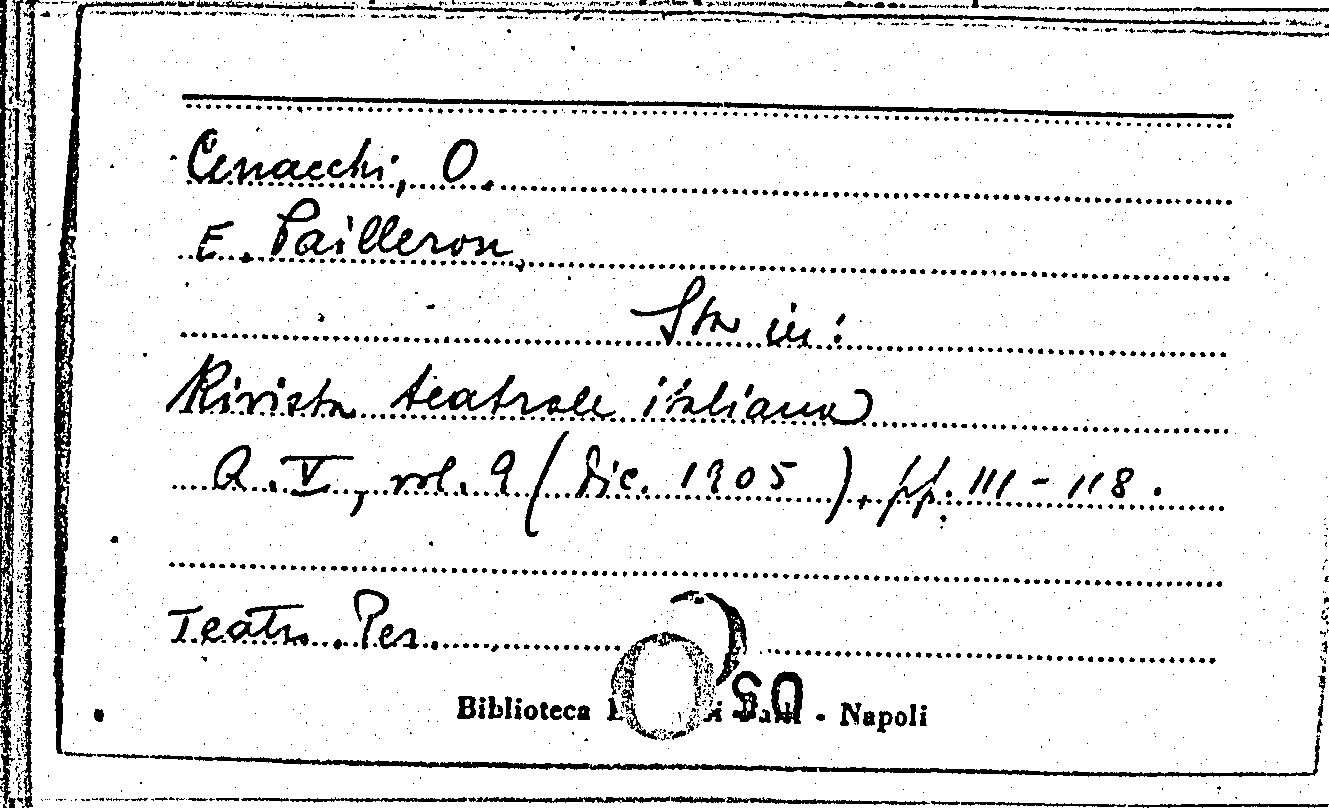 Cenacchi, O.
E. Pailleron,
Sta in:
Rivista teatrale italiana
A. V, vol. 9 (Dic. 1905), pp. 111-118.
Teatr. Per.
Biblioteca - Napoli